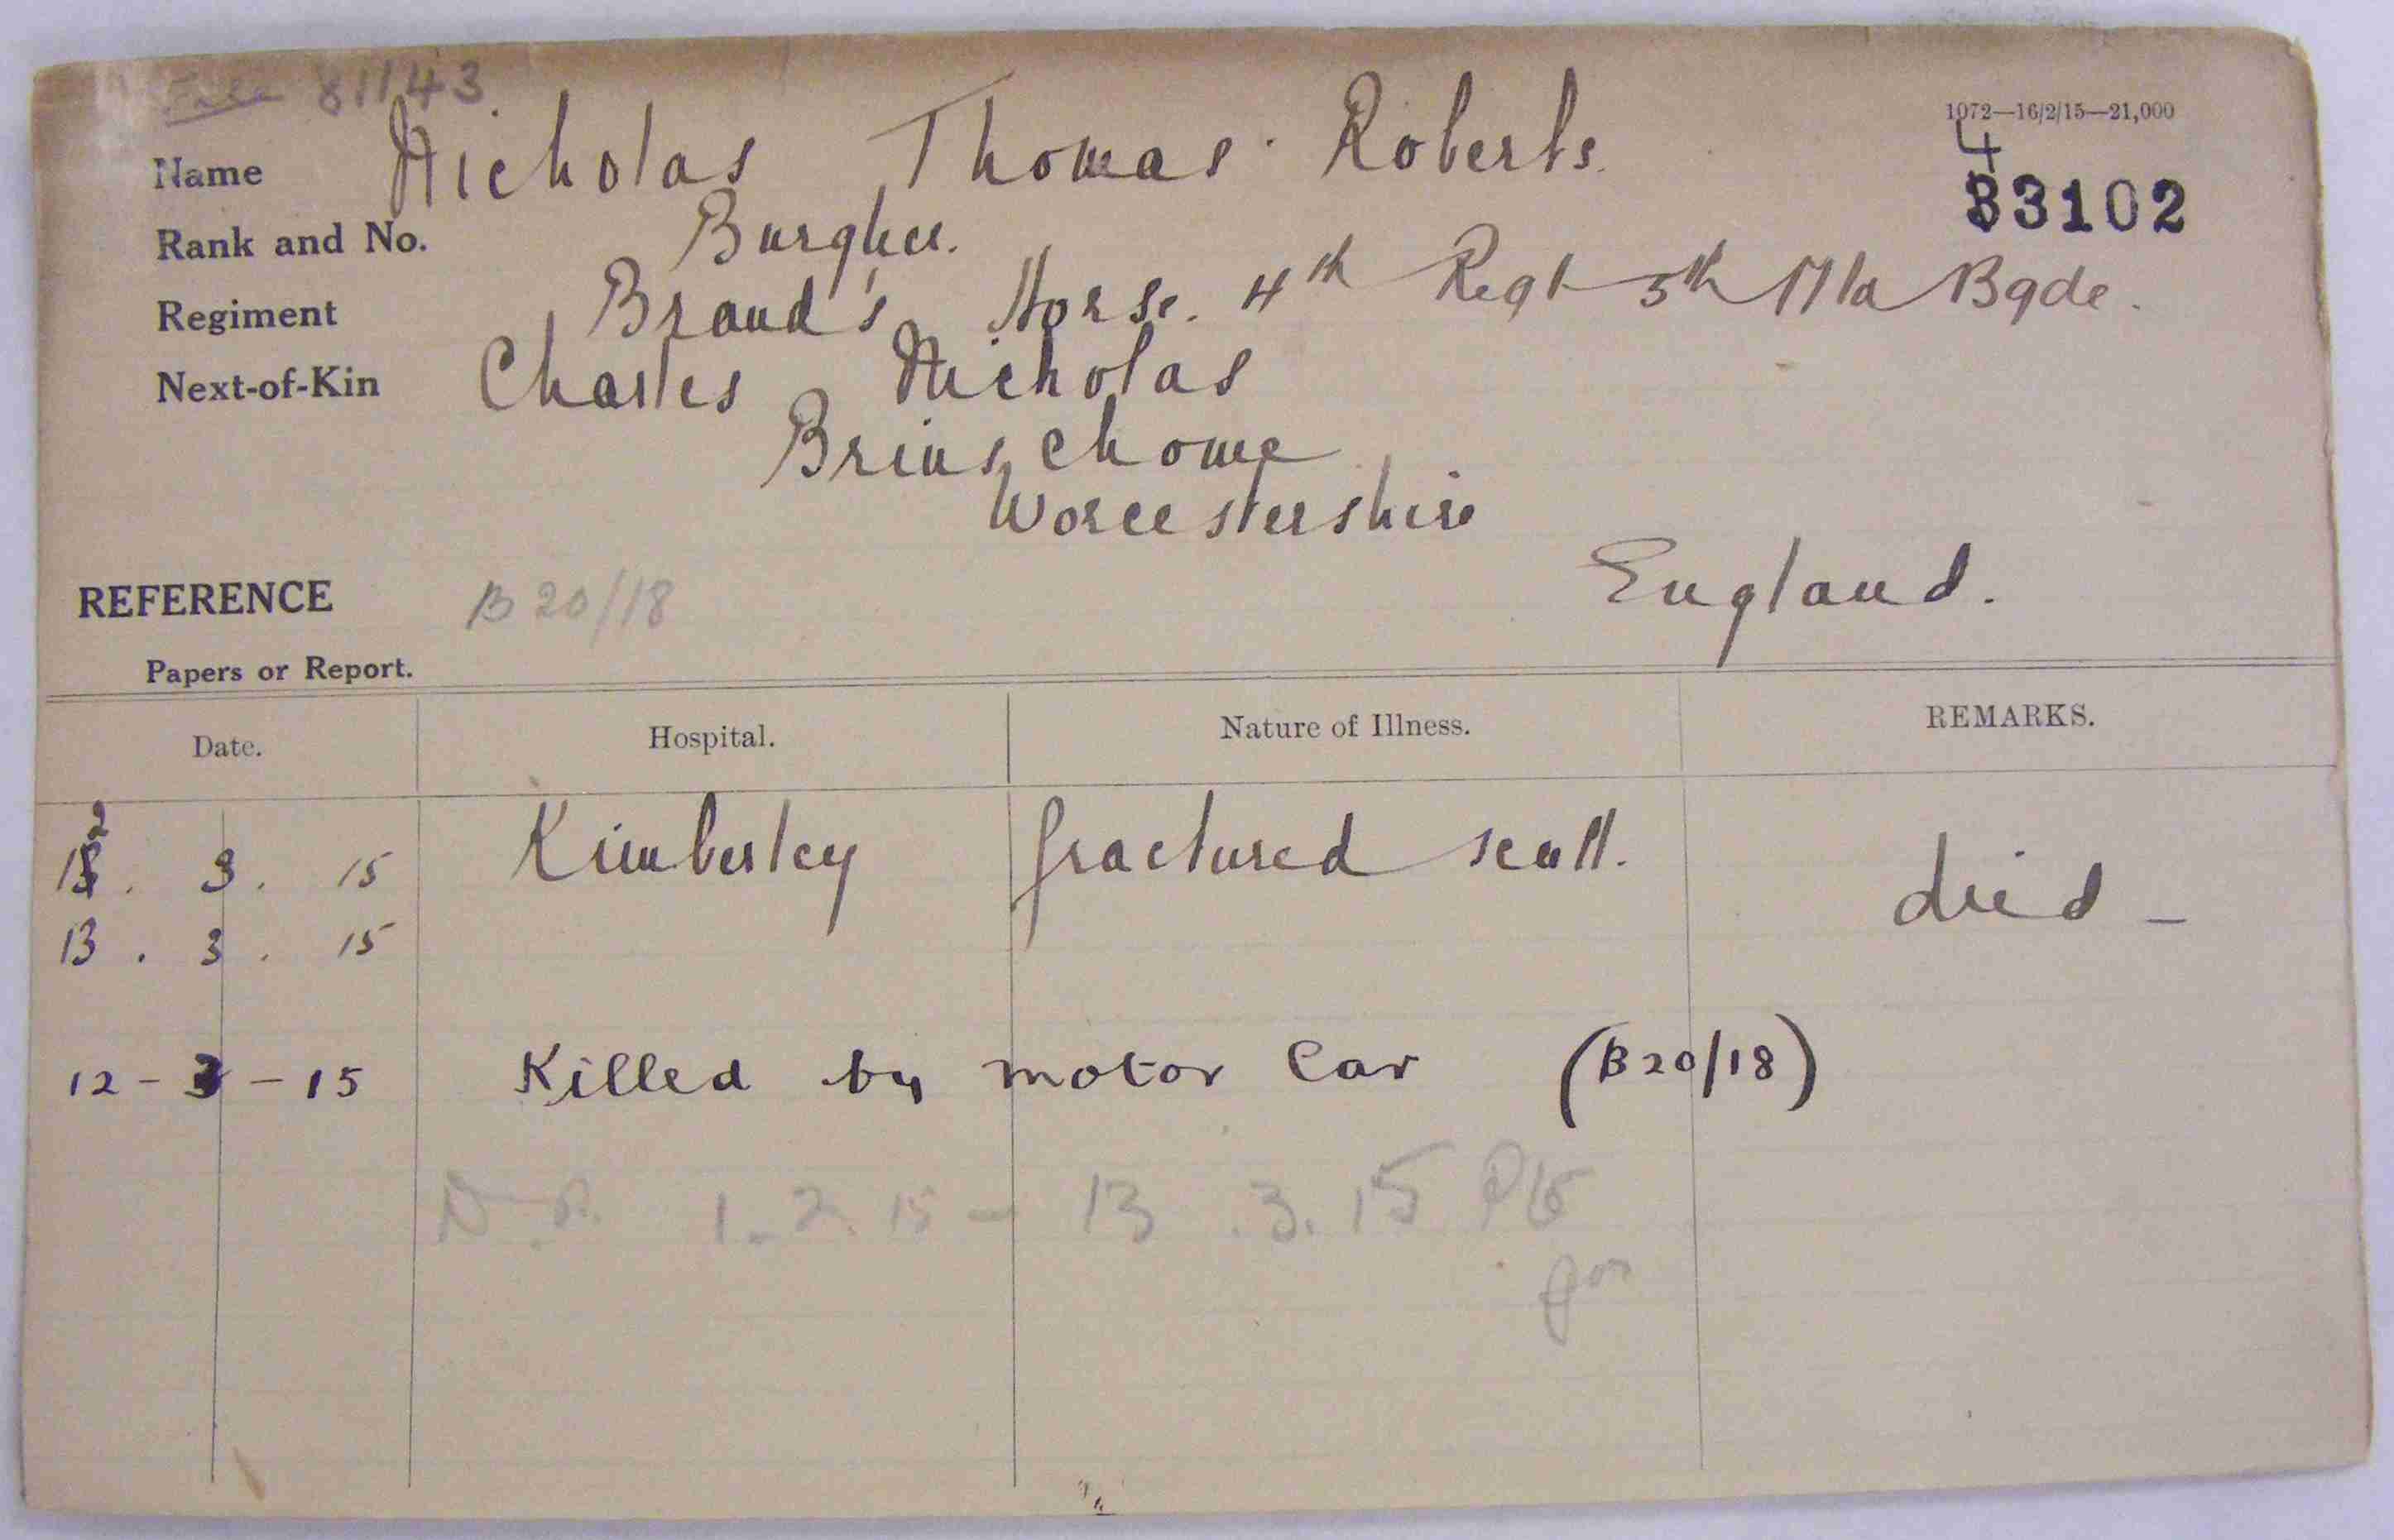 File 81143
1072—16/2/15—21,000
Name Nicholas Thomas Roberts.
4
33102
Rank and No. Burgher.
Regiment Brand's Horse. 4th Regt 5th Mtd Bgde.
Next-of-Kin Charles Nicholas
Brinschome
Worcestershire
England.
REFERENCE B20/18
Papers or Report.
Date. Hospital. Nature of Illness. REMARKS.
12. 3. 15 Kimberley fractured scull. died -
13. 3. 15
12-3-15 Killed by motor car (B20/18)
1.2.15 - 13.3.15